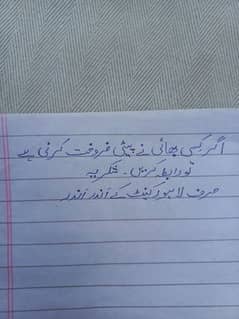 اگر کسی بھائی نے پیٹی فروخت کرنی ہے
تو رابطہ کریں۔ شکریہ
صرف لاہور کینٹ کے اندر اندر